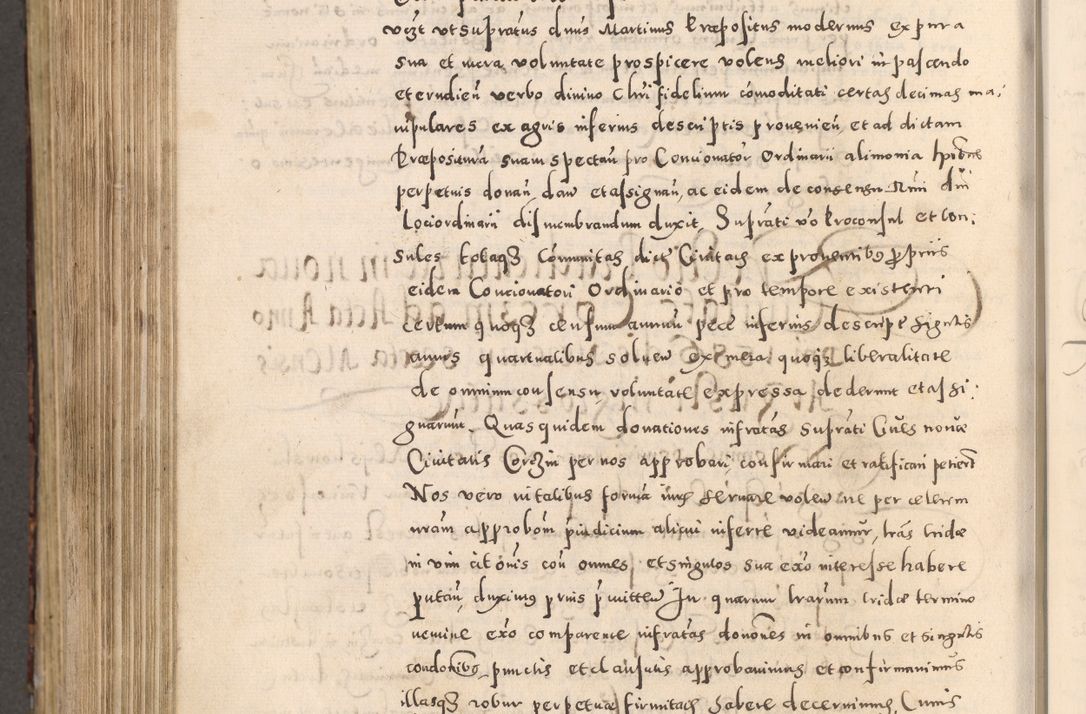 vt supratus dnus Martinus Præpositus modernus ex pura
sua et mera voluntate prospicere volens meliori in pascendo
et erudien verbo divino Chri fidelium comoditati certas decimas ma,
nipulares ex agris inferius descriptis provenien, et ad dictam
Præposituram suam spectan pro Concionator Ordinarii alimonia
perpetuis donan, daw et assignan, ac eidem de consensu Rmi dni
Lociordinarii dismembrandum duxit, Suprati vo Proconsul et Con:
sules totaqz Communitas dicte Civitatis ex proventibus propriis
eidem Concionatori Ordinario et pro tempore existenti
certum quoqz censum annuu pecc inferius descript singulis
annis quartualibus solven ex mera quoqz liberalitate
de omnium consensu voluntate expressa dederunt et assi:
gnarunt. Quas quidem donationes infratas Suprati Cives novæ
Civitatis Corzin per nos approbari, confirmari et ratificari petierunt
Nos vero in talibus forma iuris servare volen ne per celerem
nram approbom piudicium alicui inferre videamur, lras cridæ
in vim cit onis con omnes, et singulos sua exo interesse habere
putan, duximus prius pmitten In quarum lrarum cridæ termino
nemine exo comparente infratas donones in omnibus et singulis
condonibus, punctis et clausulis approbavimus et confirmavimus
illasqz robur perpetuæ firmitatis habere decernimus, Cuius